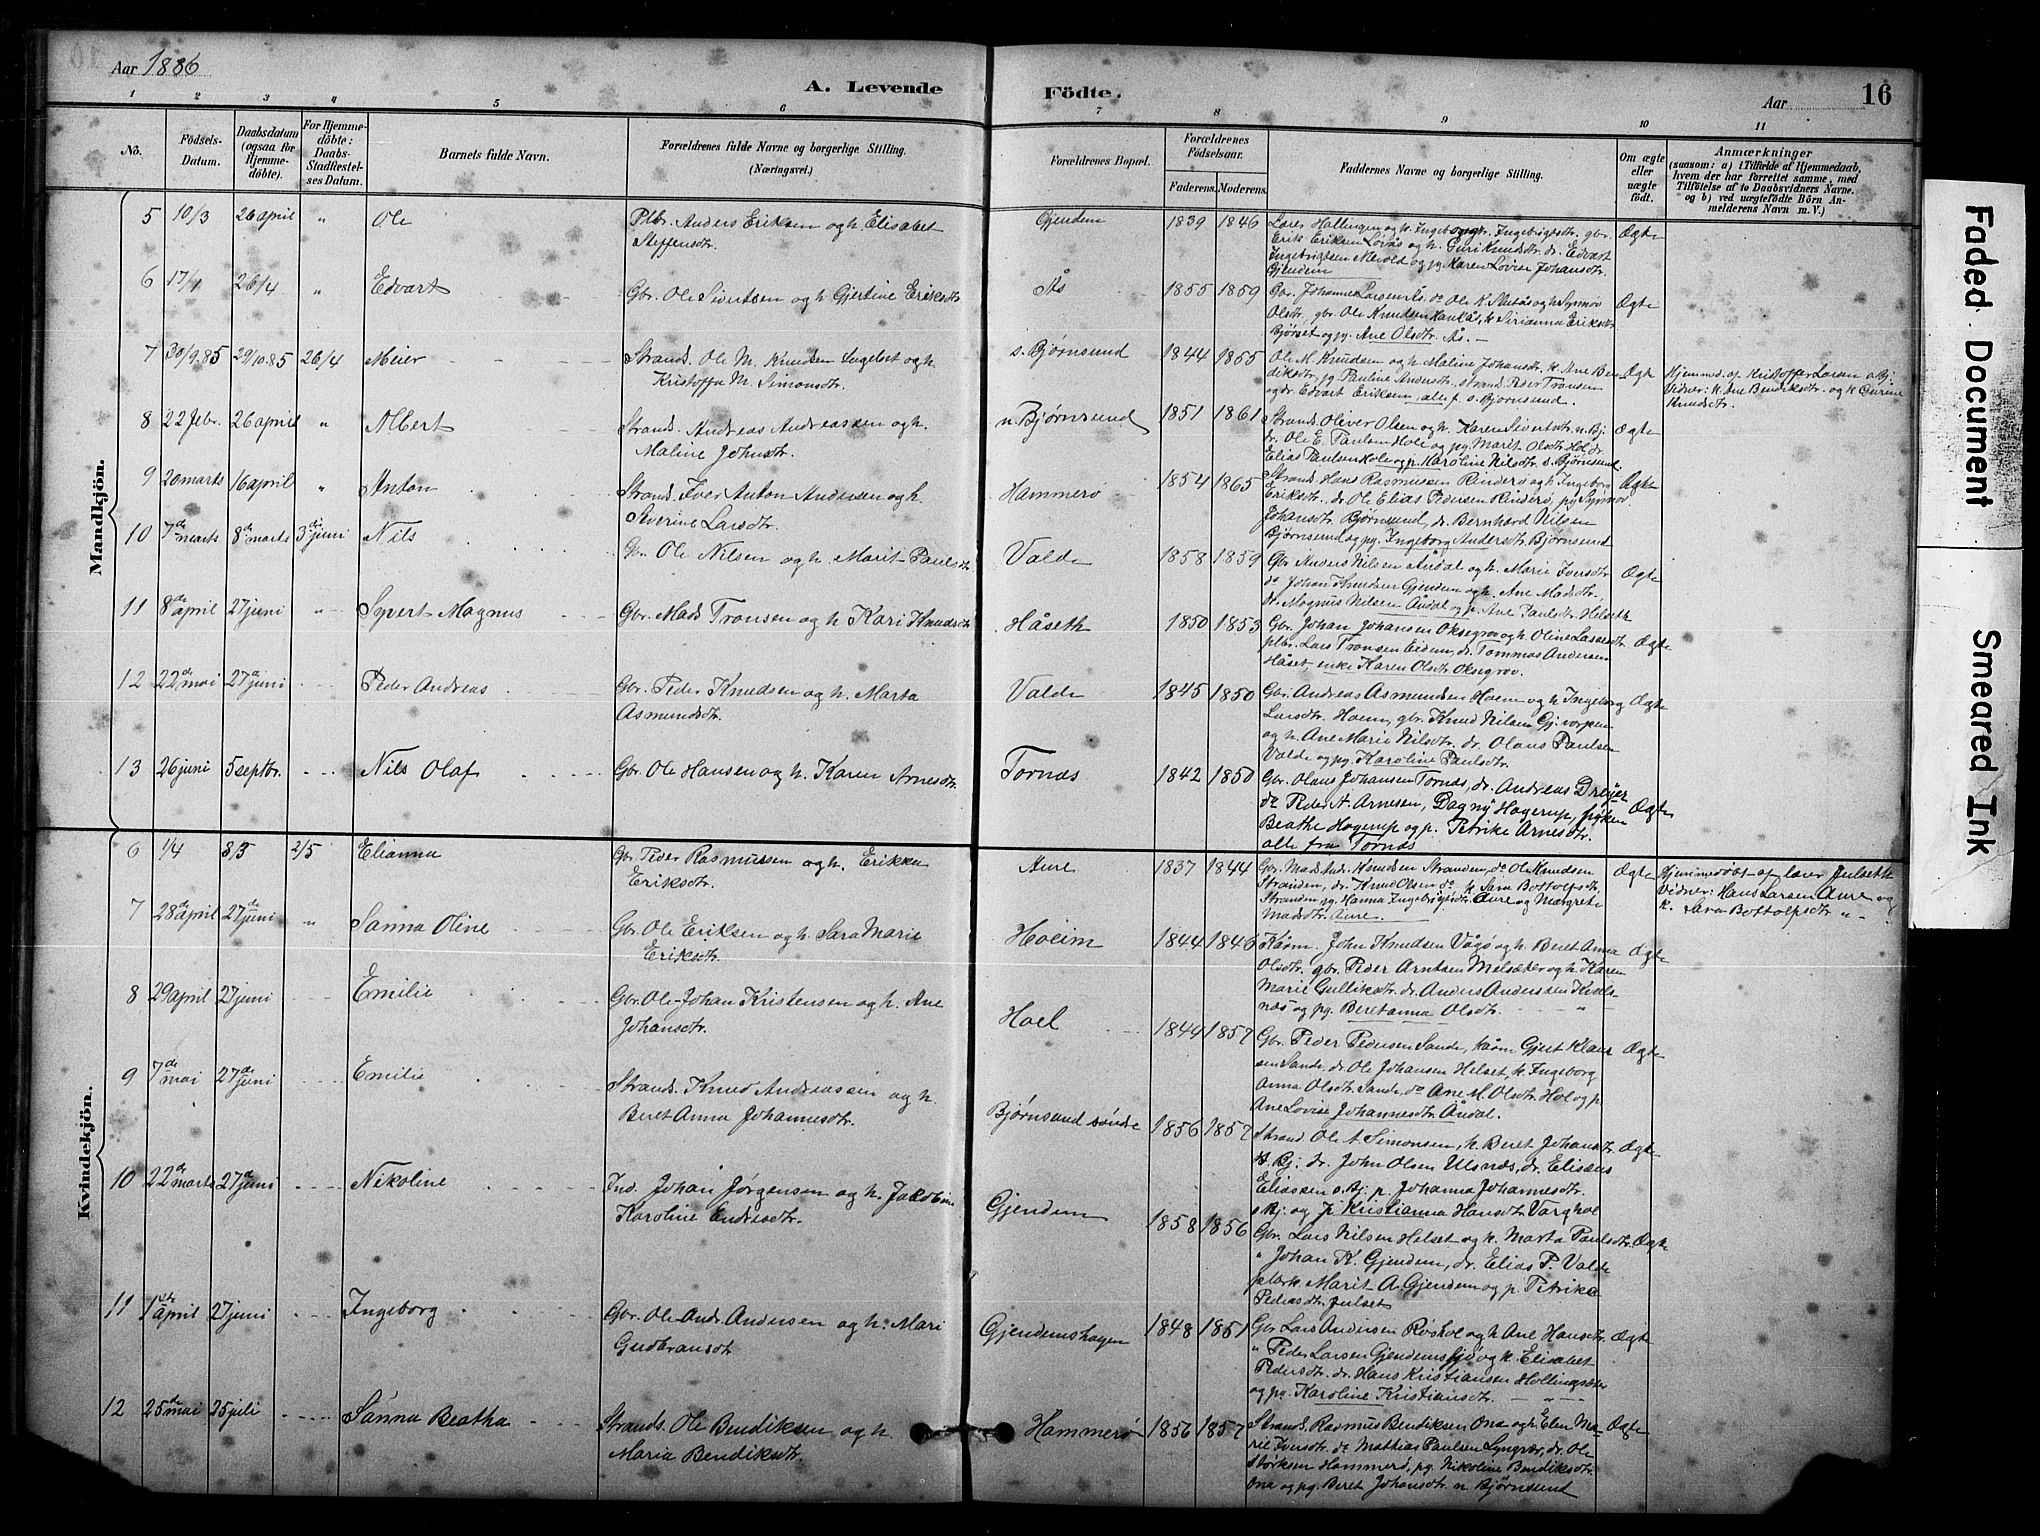 Aar 1886
A. Levende
Födte.
Aar
16
1 2 3 4 5 6 7 8 9 10 11
No.
Födsels-Datum.
Daabsdatum (ogsaa for Hjemme-döbte).
For Hjemme-döbte: Daabs-Stadfæstel-ses Datum.
Barnets fulde Navn.
Forældrenes fulde Navne og borgerlige Stilling.
(Næringsvei.)
Forældrenes Bopæl.
Forældrenes Födselsaar.
Faderens. Moderens.
Faddernes Navne og borgerlige Stilling.
Om ægte eller uægte født.
Anmærkninger
(saasom: a) i Tilfælde af Hjemmedaab,
hvem der har forrettet samme, med
Tilföielse af to Daabsvidners Navne.
og b) ved uægtefödte Börn An-
melderens Navn m. V.)
Mandkjön.
5 10/3 26 april " Ole Plbr. Anders Eriksen og h. Elisabet
Steffensdtr. Gjendem 1839 1846 Ægte
Lars Hallingen og h. Ingeborg Ingebrigtsdtr. gbr.
Erik Eriksen Løvås og h. Guri Knudsdtr. dr. Edvart
Ingebrigtsen Merold og pg. Karen Lovise Johansdtr.
Gjendem
6 17/1 26/4 " Edvart Gbr. Ole Sivertsen og h. Gjertine Eriksdtr. Ås 1855 1859 Ægte
Gbr. Johannes Larsen Ås. do Ole K. Metås og h. Synnøv
Olsdtr, gbr. Ole Knudsen Haukås, k. Sirianna Eriksdtr.
Bjørset og pg. Ane Olsdtr. Ås. -
7 30/9.85 29/10.85 26/4 Meier Strands. Ole M. Knudsen Ingelset og h.
Kristoffa M. Simonsdtr. s. Bjørnsund 1844 1855 Ægte
Ole M. Knudsen og h. Maline Johansdtr. k. Ane Ben-
diksdtr, pg. Pauline Andersdtr, strands. Peder Tronsen
og dr. Edvart Eriksen, alle f. s. Bjørnsund.
Hjemmed. af Kristoffer Larsen s. Bj.
Vidner: k. Ane Bendiksdtr. og k. Gurine
Knudsdtr.
8 22 febr. 26 april " Albert Strands. Andreas Andreassen og h.
Maline Johnsdtr. n. Bjørnsund 1851 1861 Ægte
Strands. Oliver Olsen og h. Karen Sivertsdtr. n. Bj.
dr. Ole E. Paulsen Hole og pg. Marit Olsdtr. Hol, dr.
Elias Paulsen Hole og p. Karoline Nilsdtr. s. Bjørnsund.
9 20 marts 16 april " Anton Strands. Iver Anton Andersen og h.
Severine Larsdtr. Hammerø 1854 1865 Ægte
Strands. Hans Rasmussen Rinderø og h. Ingeborg
Eriksdtr. dr. Ole Elias Pedersen Rinderø, pg. Synnøv
Johansdtr. Bjørnsund, dr. Bernhard Nilsen
Bjørnsund og pg. Ingeborg Andersdtr. Bjørnsund
10 7de marts 8de marts 3die juni Nils Gbr. Ole Nilsen og h. Marit Paulsdtr. Valde 1858 1859 Ægte
Gbr. Anders Nilsen Årdal og h. Marie Iversdtr.
do Johan Knudsen Gjendem og h. Ane Madsdtr.,
dr. Magnus Nilsen Åndal og p. Ane Paulsdtr. Helseth
11 8de april 27 juni " Syvert Magnus Gbr. Mads Tronsen og h. Kari Knudsdtr. Håseth 1850 1853 Ægte
Gbr. Johan Johansen Oksegrov og h. Oline Lassesdtr.
plbr. Lars Tronsen Eidem, dr. Tommas Andersen
Håset, enke Karen Olsdtr. Oksegrov.
12 22de mai 27de juni Peder Andreas Gbr. Peder Knudsen og h. Marta
Asmundsdtr. Valde 1845 1850 Ægte
Gbr. Andreas Asmundsen Hoem og h. Ingeborg
Larsdtr. Hoem, gbr. Knud Nilsen Gj.vorpen
og h. Ane Marie Nilsdtr. dr. Olaus Paulsen
Valde og pg. Karoline Paulsdtr.
13 26 juni 5 septbr. Nils Olaf Gbr. Ole Hansen og h. Karen Arnesdtr. Tornæs 1842 1850 Ægte
Gbr. Olaus Johansen Tornæs, dr. Andreas Dreyer
do Peder A. Arnesen, Dagny Hagerup, frøken
Beathe Hagerup og p. Petrike Arnesdtr.
alle fra Tornæs
Kvindekjön.
6 1/4 8/5 2/5 Elianna Gbr. Peder Rasmussen og h. Erikka
Eriksdtr. Aure 1837 1844 Ægte
Gbr. Mads Andr. Knudsen Stranden, do Ole Knudsen
Stranden, dr. Knud Olsen do, k. Sara Bottolfsdtr.
Stranden, pg. Hanna Ingebrigtsdtr. Aure og Margrete
Madsdtr. Aure.
Hjemmedøbt af lærer Julseth
Vidner: Hans Larsen Aure og
k. Sara Bottolfsdtr "
7 28de april 27de juni " Sanna Oline Gbr. Ole Eriksen og h. Sara Marie
Eriksdtr. Hoeim 1844 1846 Ægte
Kåsm. John Knudsen Vågø og h. Beret Anna
Olsdtr. gbr. Peder Arntsen Melsæter og h. Karen
Marie Gulliksdtr. dr. Anders Anderssen Kvels-
næs og pg. Beretanna Olsdtr. "
8 29 april 27 juni Emilie Gbr. Ole Johan Kristensen og h. Ane
Johansdtr. Hoel 1844 1857 Ægte
Gbr. Peder Pedersen Sande, kåsm Gjert Klaus-
sen Sande, dr. Ole Johansen Helset, k. Ingeborg
Anna Olsdtr. Sande, do Ane M. Olsdtr. Hol og p.
Ane Lovise Johannesdtr. Åndal.
9 7de mai 27de juni Emilie Strands. Knud Andreassen og h.
Beret Anna Johannesdtr. Bjørnsund søndre 1856 1857 Ægte
Strand. Ole A. Simonsen, k. Beret Johansdtr.
s. Bj. dr. John Olsen Ulsnæs, dr. Elisæus
Eliassen s. Bj. p. Johanna Johannesdtr.
s Bj. og p Kristianna Hansdtr. Varghol
10 22de marts 27de juni Nikoline Ind. Johan Jørgensen og h. Jakobine
Karoline Endresdtr. Gjendem 1858 1856 Ægte
Gbr. Lars Nilsen Helset og h. Marta Paulsdtr.
" Johan K. Gjendem, dr. Elias P. Valde
plørk. Marit A. Gjendem og p. Petrika
Pedersdtr. Julset
11 1ste april 27 juni Ingeborg Gbr. Ole Andr. Andersen og h. Mari
Gudbransdtr. Gjendemshagen 1848 1851 Ægte
Gbr. Lars Andersen Røshol og h. Ane Hansdtr.
" Peder Larsen Gjendemsfjø og k. Elisabet
Pedersdtr. dr. Hans Kristiansen Hollingsæter
og pg. Karoline Kristiansdtr. "
12 25de mai 25 juli Sanna Beatha Strands. Ole Bendiksen og h.
Maria Bendiksdtr. Hammerø 1856 1857 Ægte
Strands. Rasmus Bendiksen Ona og h. Elen Ma-
rie Iversdtr. do Mathias Paulsen Lyngvær, dr. Ole
Størksen Hammerø, pg. Nikoline Bendiksdtr.
Ona og pg. Beret Johansdtr. n. Bjørnsund
Faded Document
Smeared Ink